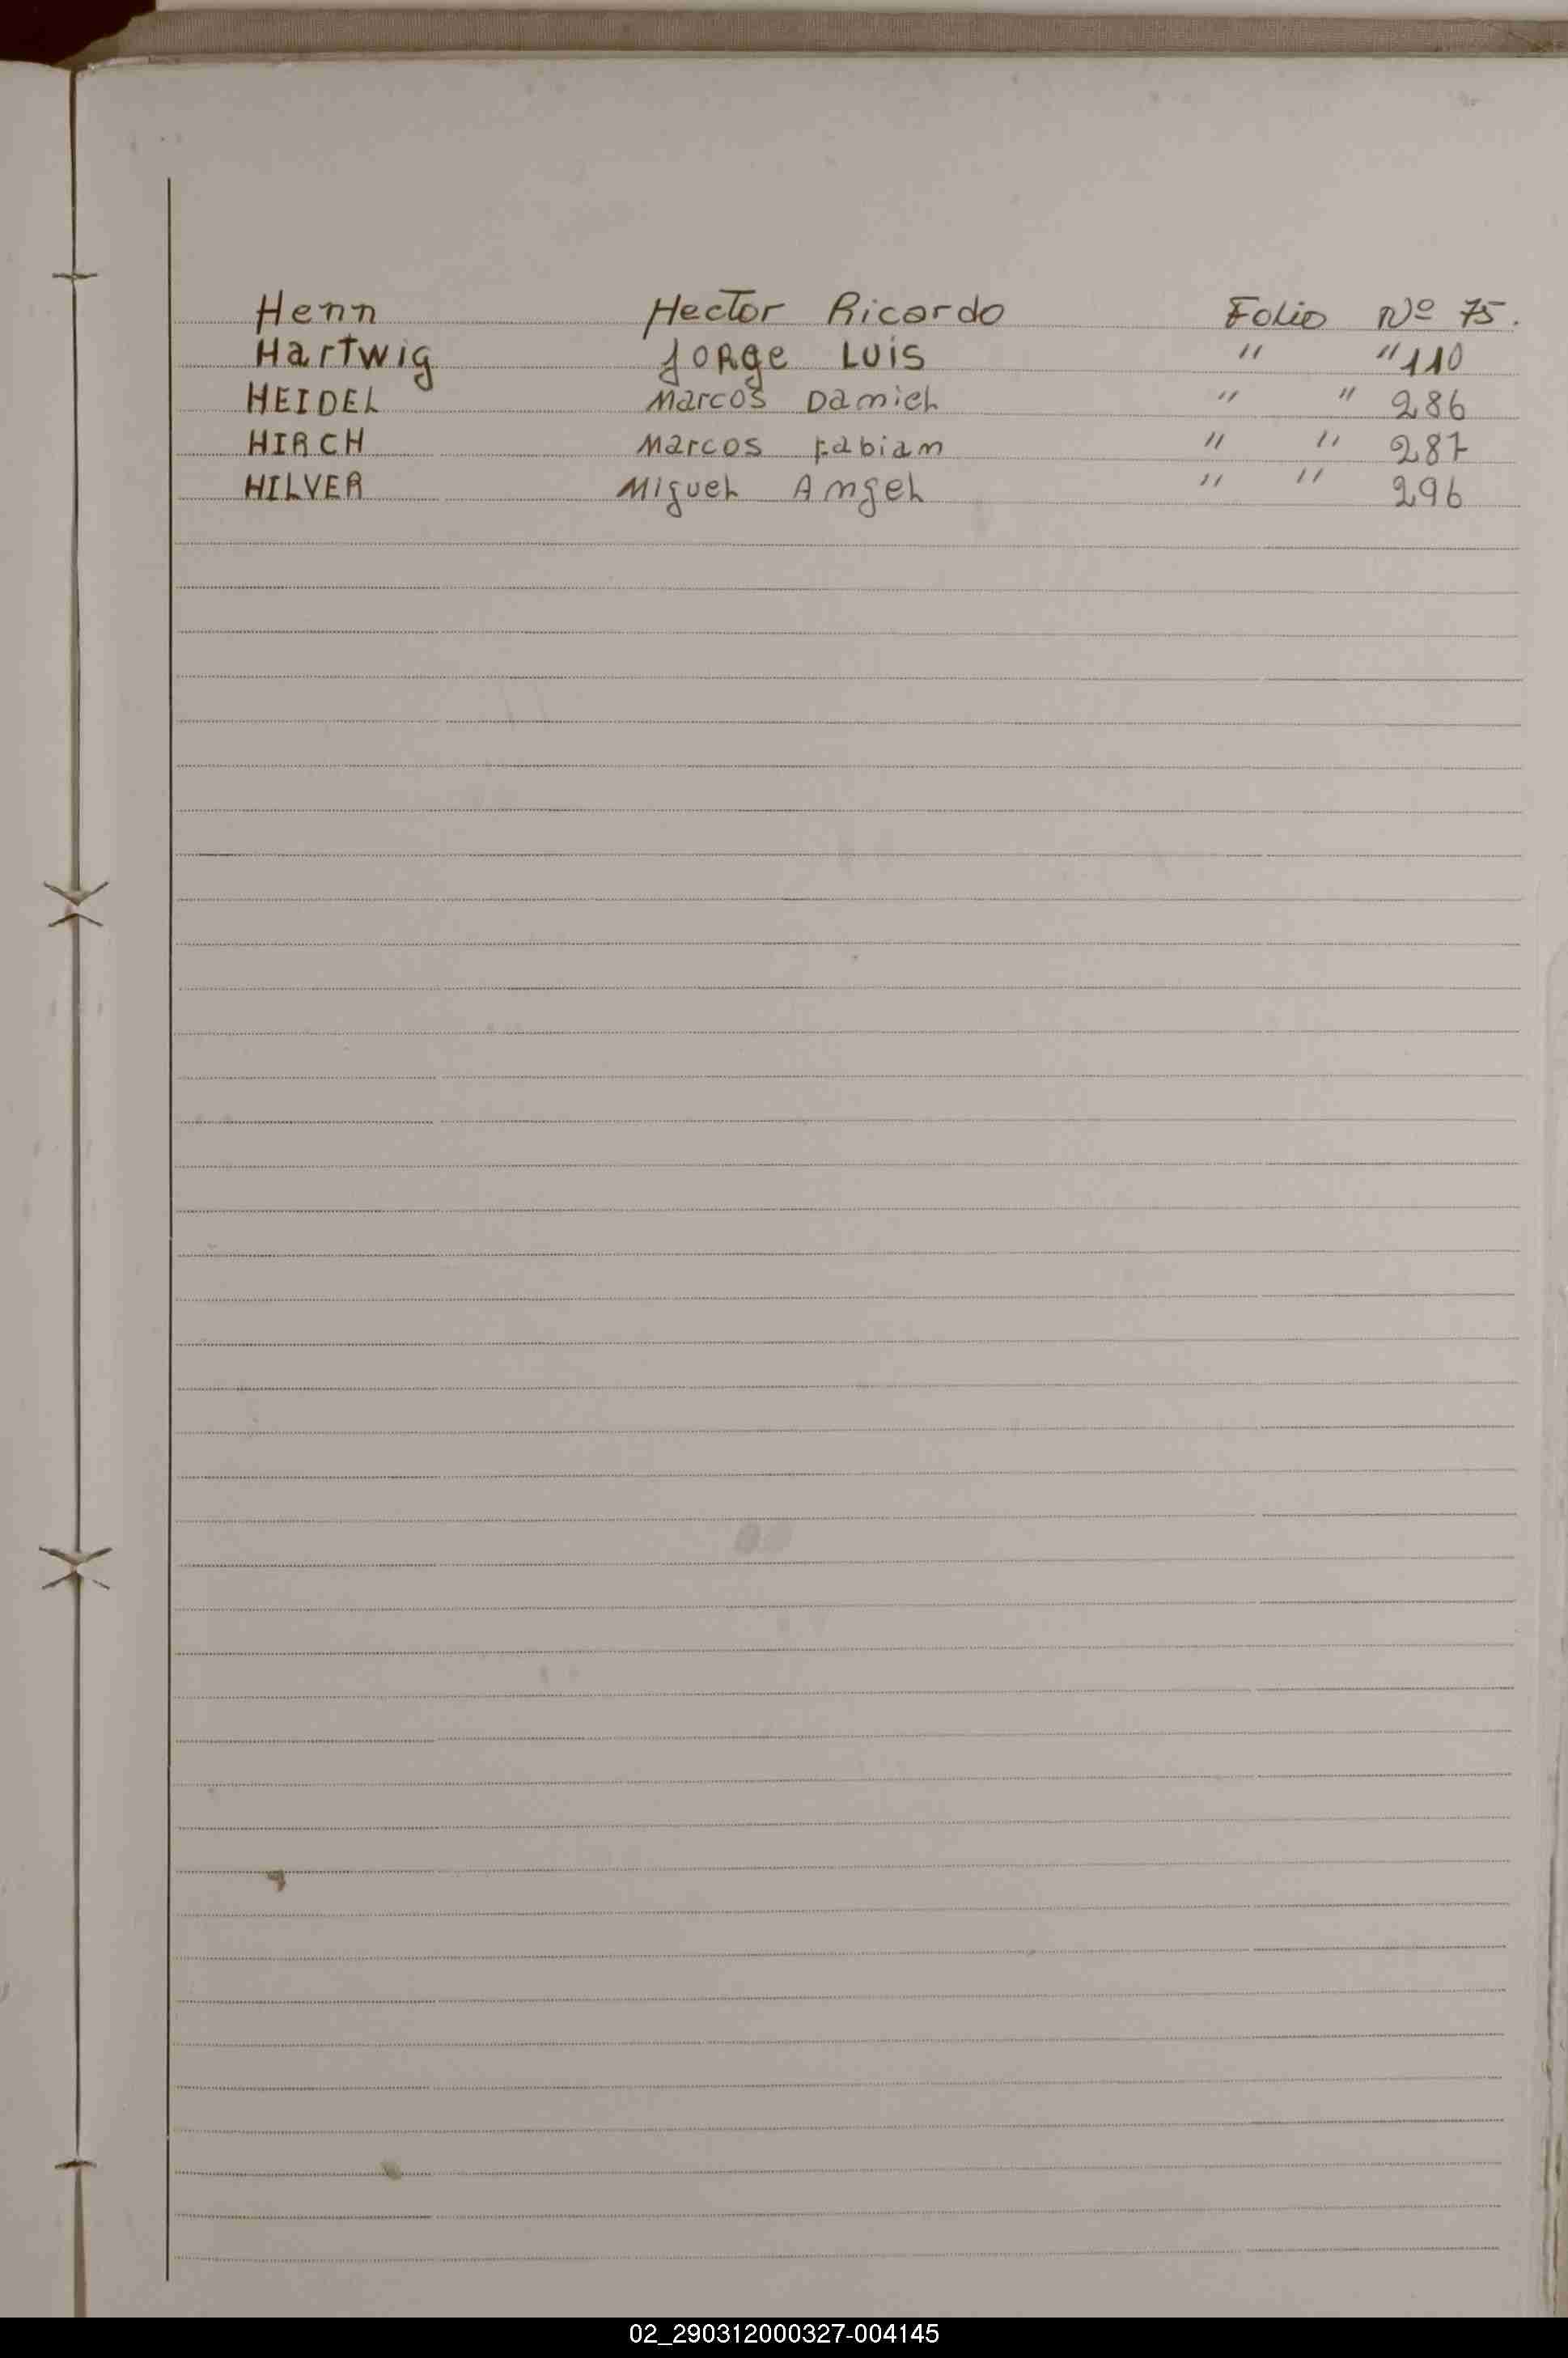 Henn Hector Ricardo Folio Nº 75.
Hartwig Jorge Luis " " 110
HEIDEL Marcos Daniel " " 286
HIRCH Marcos Fabian " " 287
HILVER Miguel Angel " " 296
02_290312000327-004145